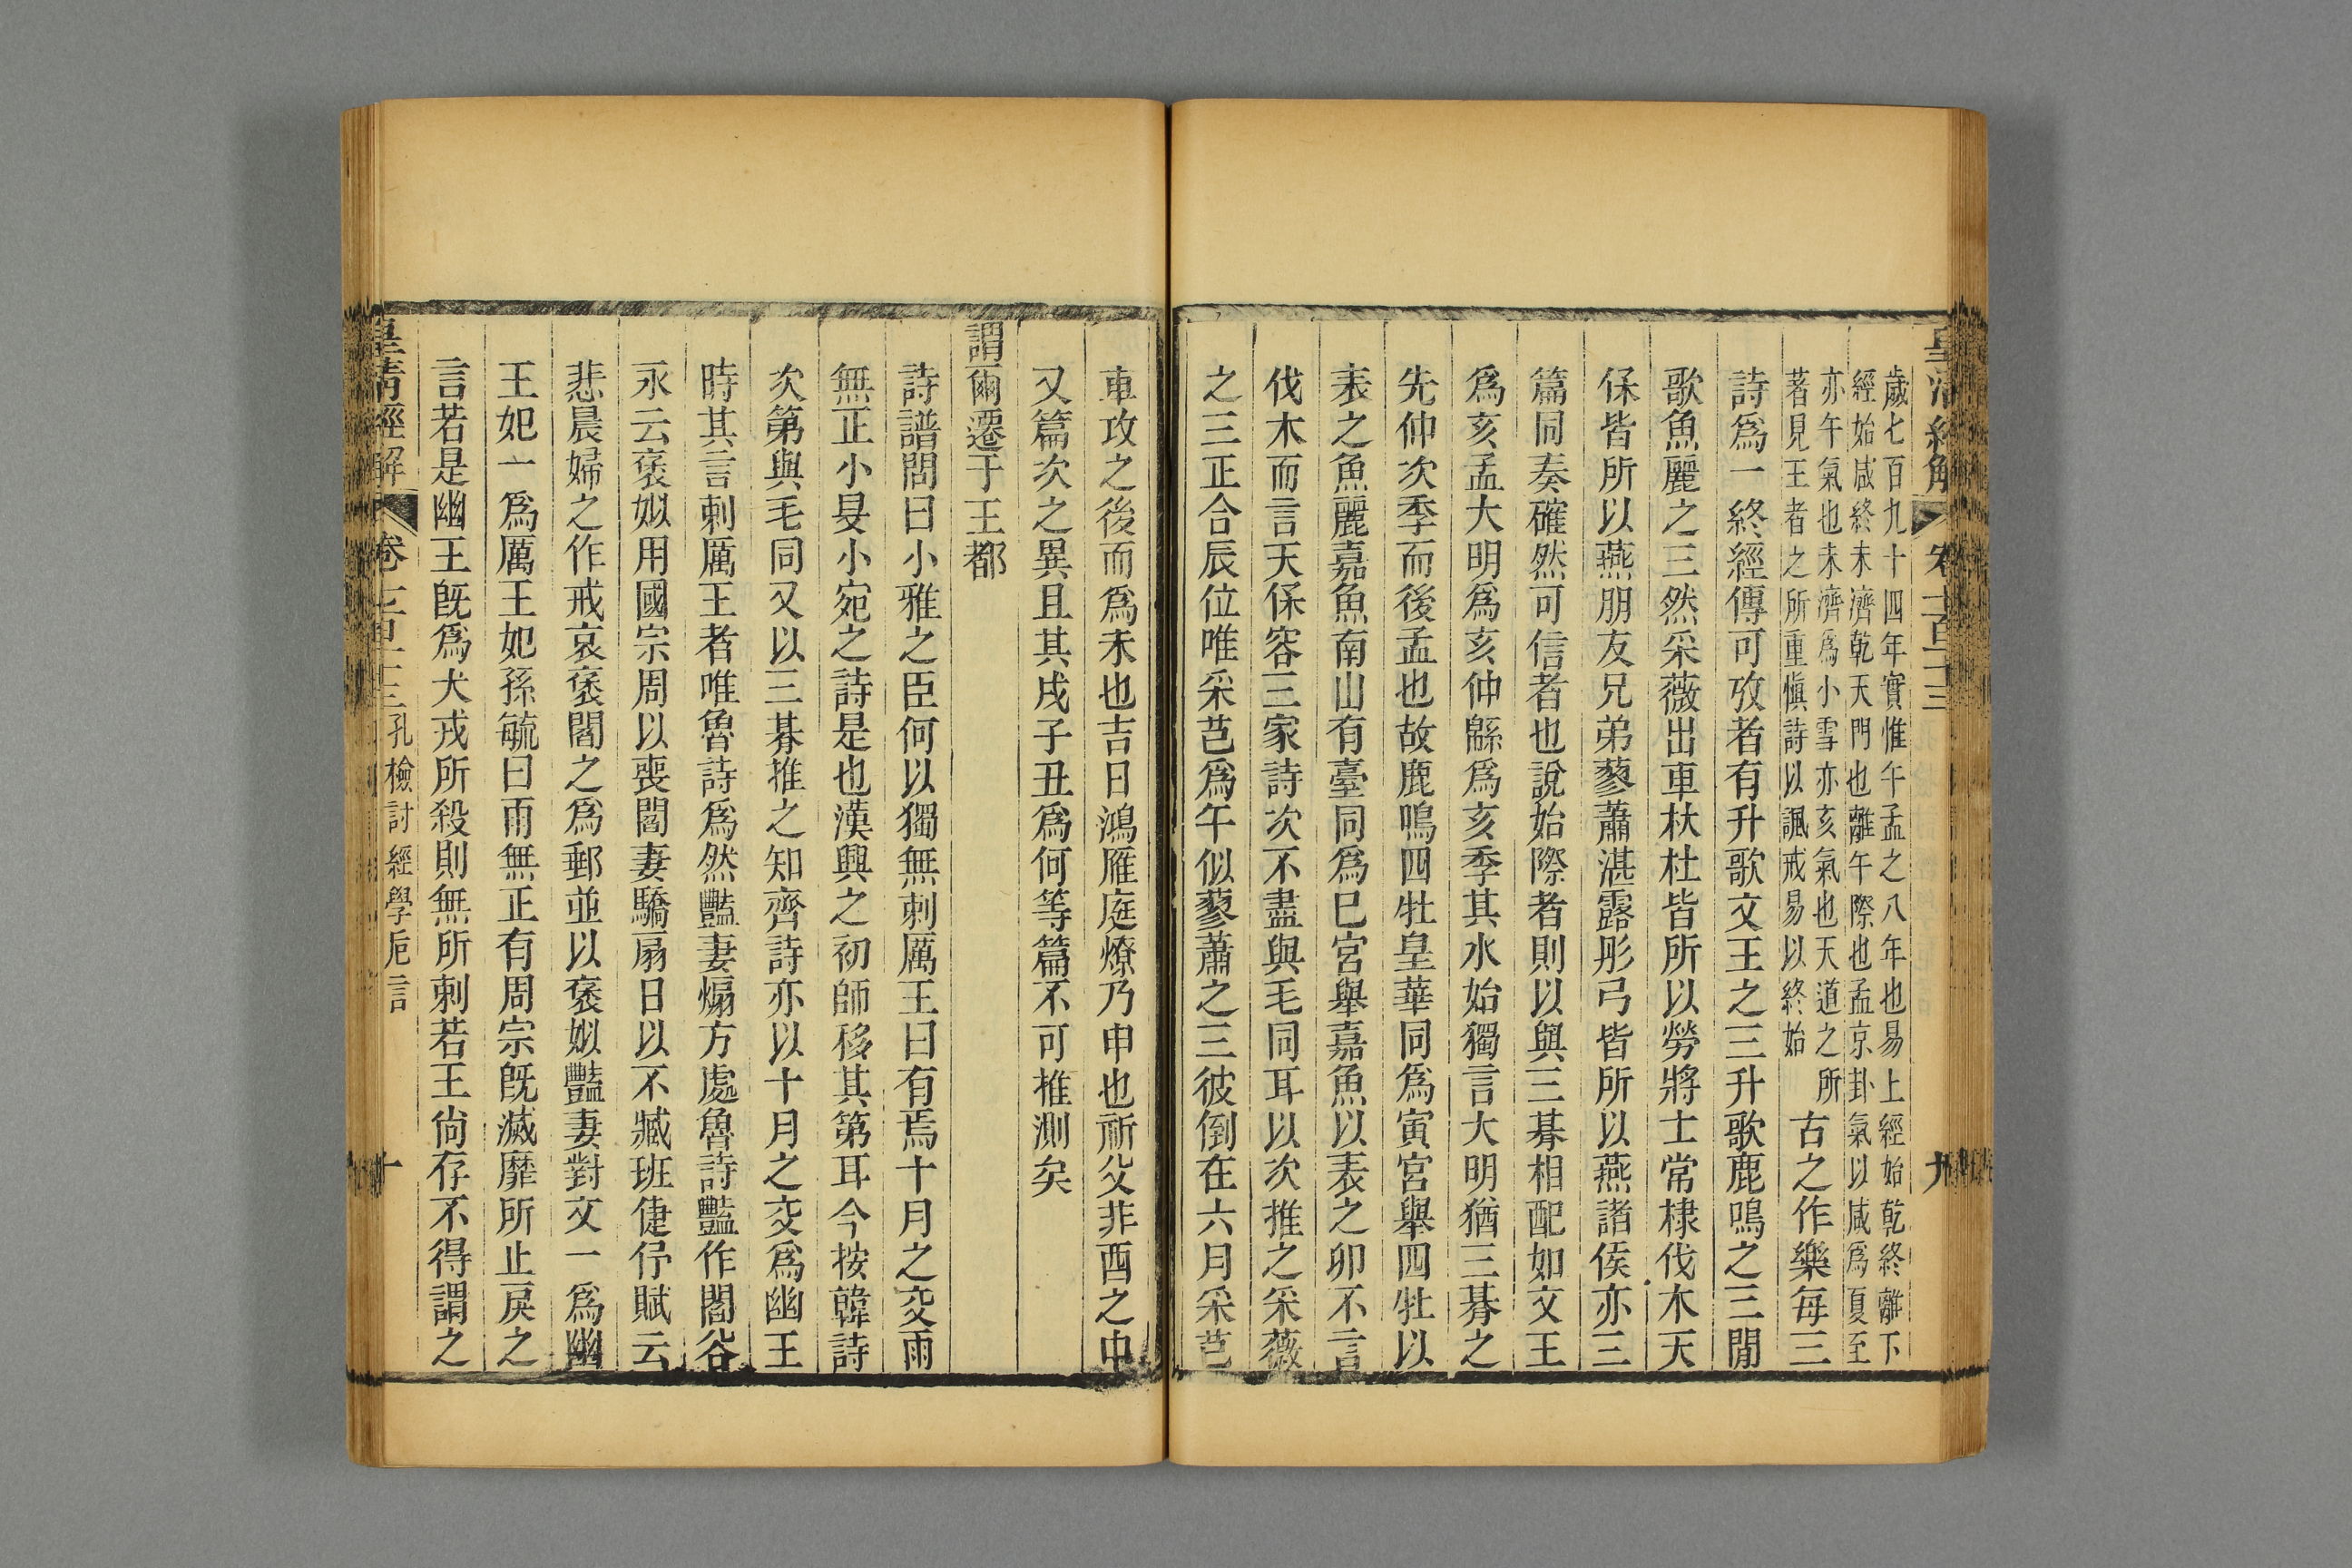 皇清經解 卷七百十三 九
歲七百九十四年實惟午孟之八年也易上經始乾終離下
經始咸終未濟乾天門也離午際也孟京卦氣以咸爲夏至
亦午氣也未濟爲小雪亦亥氣也天道之所
著見王者之所重愼詩以諷戒易以終始
古之作樂每三
詩爲一終經傳可攷者有升歌文王之三升歌鹿鳴之三閒
歌魚麗之三然采薇出車杕杜皆所以勞將士常棣伐木天
保皆所以燕朋友兄弟蓼蕭湛露彤弓皆所以燕諸侯亦三
篇同奏確然可信者也說始際者則以與三朞相配如文王
爲亥孟大明爲亥仲緜爲亥季其水始獨言大明猶三朞之
先仲次季而後孟也故鹿鳴四牡皇華同爲寅宮舉四牡以
表之魚麗嘉魚南山有臺同爲巳宮舉嘉魚以表之卯不言
伐木而言天保容三家詩次不盡與毛同耳以次推之采薇
之三正合辰位唯采芑爲午似蓼蕭之三彼倒在六月采芑
車攻之後而爲未也吉日鴻雁庭燎乃申也祈父非酉之中
又篇次之異且其戌子丑爲何等篇不可推測矣
謂爾遷于王都
詩譜問曰小雅之臣何以獨無刺厲王曰有焉十月之交雨
無正小旻小宛之詩是也漢興之初師移其第耳今按韓詩
次第與毛同又以三朞推之知齊詩亦以十月之交爲幽王
時其言刺厲王者唯魯詩爲然豔妻煽方處魯詩豔作閻谷
永云褒姒用國宗周以喪閻妻驕扇日以不臧班倢伃賦云
悲晨婦之作戒哀褒閻之爲郵並以褒姒豔妻對文一爲幽
王妃一爲厲王妃孫毓曰雨無正有周宗旣滅靡所止戾之
言若是幽王旣爲犬戎所殺則無所刺若王尙存不得謂之
皇清經解 卷七百十三 孔檢討經學卮言 十